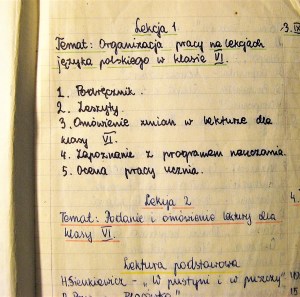 Lekcja 1
3. IX
Temat: Organizacja pracy na lekcjach
języka polskiego w klasie VI.
1. Podręcznik.
2. Zeszyty.
3. Omówienie zmian w lekturze dla
klasy VI.
4. Zapoznanie z programem nauczania.
5. Ocena pracy ucznia.
Lekcja 2
4.
Temat: Podanie i omówienie lektury dla
klasy VI.
Lektura podstawowa
H. Sienkiewicz - „W pustyni i w puszczy"